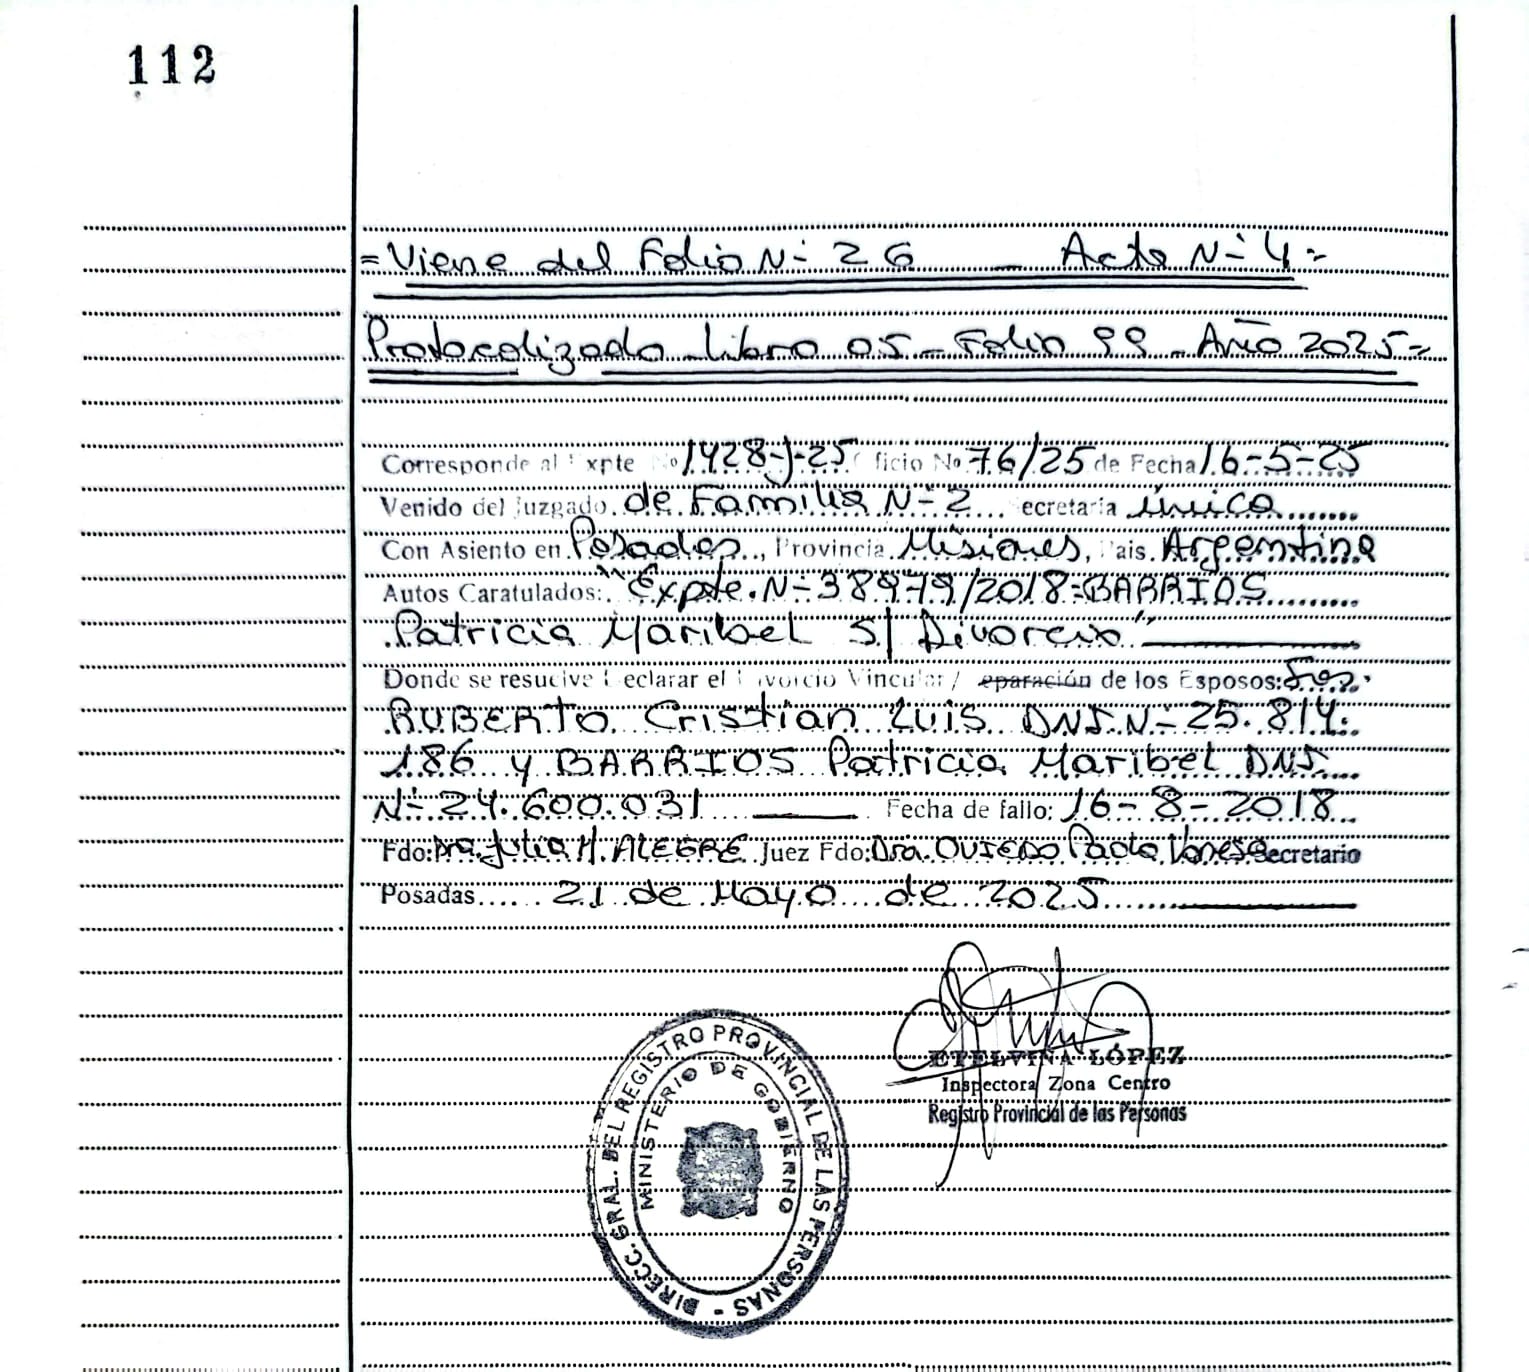 112
=Viene del Folio N- 26 _ Acta N- 4=
Protocolizado Libro 05 - Folio 99 - Año 2025=
Corresponde al Expte Nº 1428-J-25 Oficio Nº 76/25 de Fecha 16-5-25
Venido del Juzgado de Familia N-2 Secretaria Única
Con Asiento en Posadas, Provincia Misiones, Pais. Argentina
Autos Caratulados: "Expte. N-38979/2018-BARRIOS
Patricia Maribel S/ Divorcio"
Donde se resuelve Declarar el Divorcio Vincular/ eparación de los Esposos: Sres.
RUBERTO Cristian Luis DNI. N- 25.814.
186 y BARRIOS Patricia Maribel DNI
N- 24.600.031 Fecha de fallo: 16-8-2018
Fdo: Dra. Julia H. ALEGRE Juez Fdo: Dra. OVIEDO Paola Vanesa Secretario
Posadas...... 21 de Mayo de 2025
ETELVINA LÓPEZ
Inspectora Zona Centro
Registro Provincial de las Personas
DIRECC. GRAL. DEL REGISTRO PROVINCIAL DE LAS PERSONAS -
MINISTERIO DE GOBIERNO